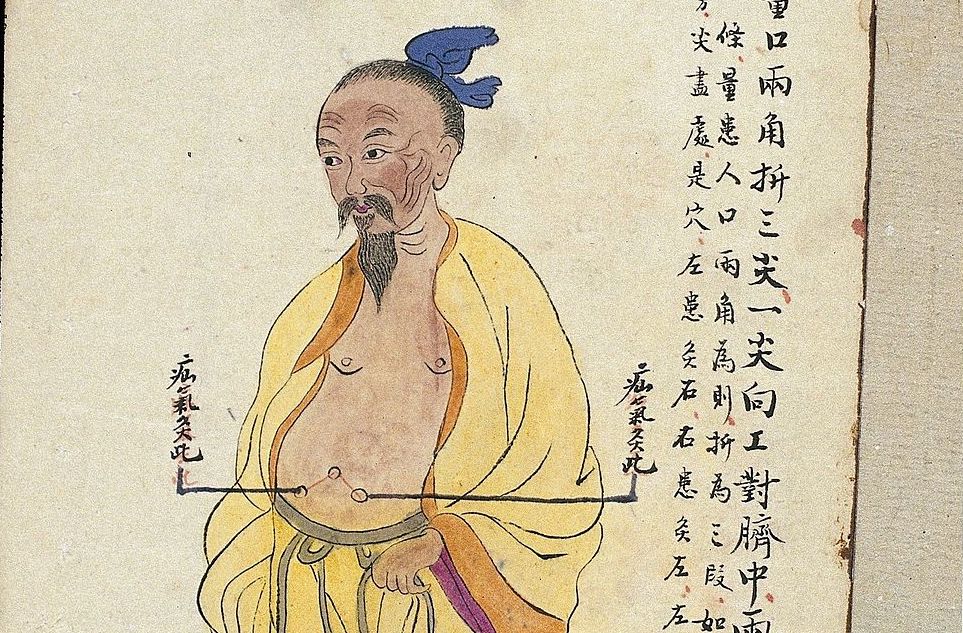 量口兩角拼三尖一尖向工對臍中兩
條量患人口兩角為則折為三段如
尖盡處是穴左患灸右右患灸左左
疝氣灸此
疝氣灸此